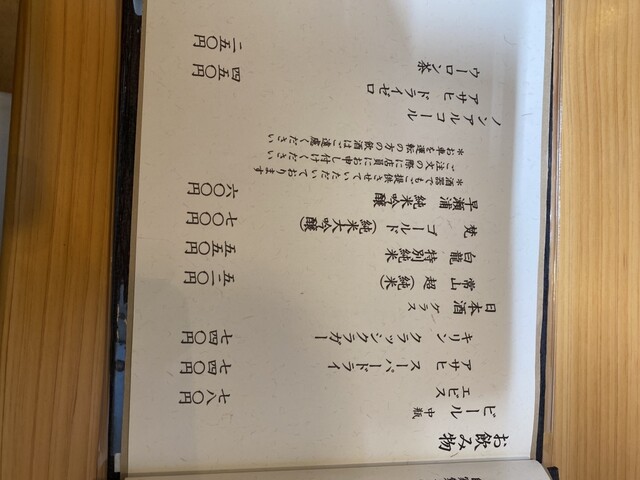 お飲み物
ビール 中瓶
エビス 七八〇円
アサヒ スーパードライ 七四〇円
キリン クラッシックラガー 七四〇円
日本酒 グラス
常山 超(純米) 五二〇円
白龍 特別純米 五五〇円
梵 ゴールド(純米大吟醸) 七〇〇円
早瀬浦 純米吟醸 六〇〇円
※酒器でもご提供させていただいております
ご注文の際に店員にお申し付けください
※お車を運転の方の飲酒はご遠慮ください
ノンアルコール
アサヒ ドライゼロ 四五〇円
ウーロン茶 二五〇円